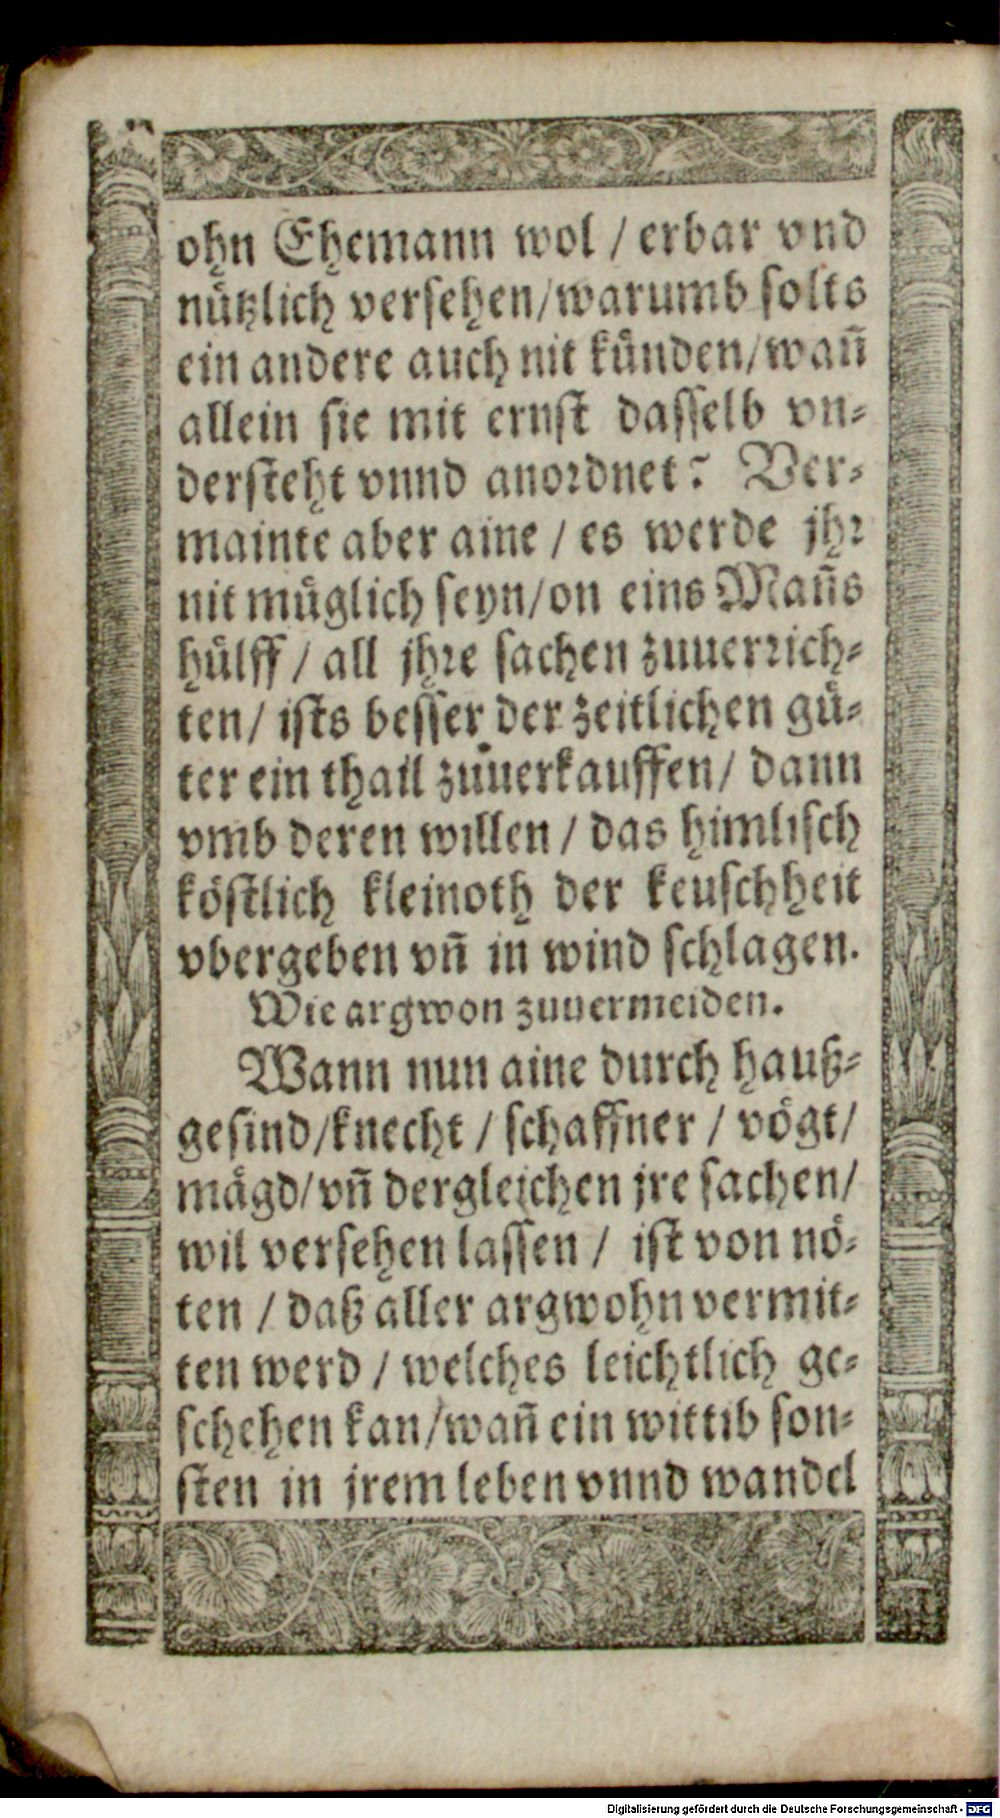 ohn Ehemann wol / erbar vnd
nützlich versehen/warumb solts
ein andere auch nit künden/wañ
allein sie mit ernst dasselb vn⸗
dersteht vnnd anordnet? Ver⸗
mainte aber aine / es werde jhr
nit müglich seyn/on eins Mañs
hülff / all jhre sachen zuuerrich⸗
ten/ ists besser der zeitlichen gü⸗
ter ein thail zuuerkauffen/ dann
vmb deren willen / das himlisch
köstlich kleinoth der keuschheit
vbergeben vñ in wind schlagen.
Wie argwon zuuermeiden.
Wann nun aine durch hauß⸗
gesind/knecht / schaffner / vögt/
mägd/vñ dergleichen jre sachen/
wil versehen lassen / ist von nö⸗
ten / daß aller argwohn vermit⸗
ten werd / welches leichtlich ge⸗
schehen kan/wañ ein wittib son⸗
sten in jrem leben vnnd wandel
Digitalisierung gefördert durch die Deutsche Forschungsgemeinschaft - DFG